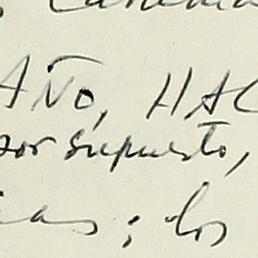 AÑO, HAC
por supuesto,
as; los